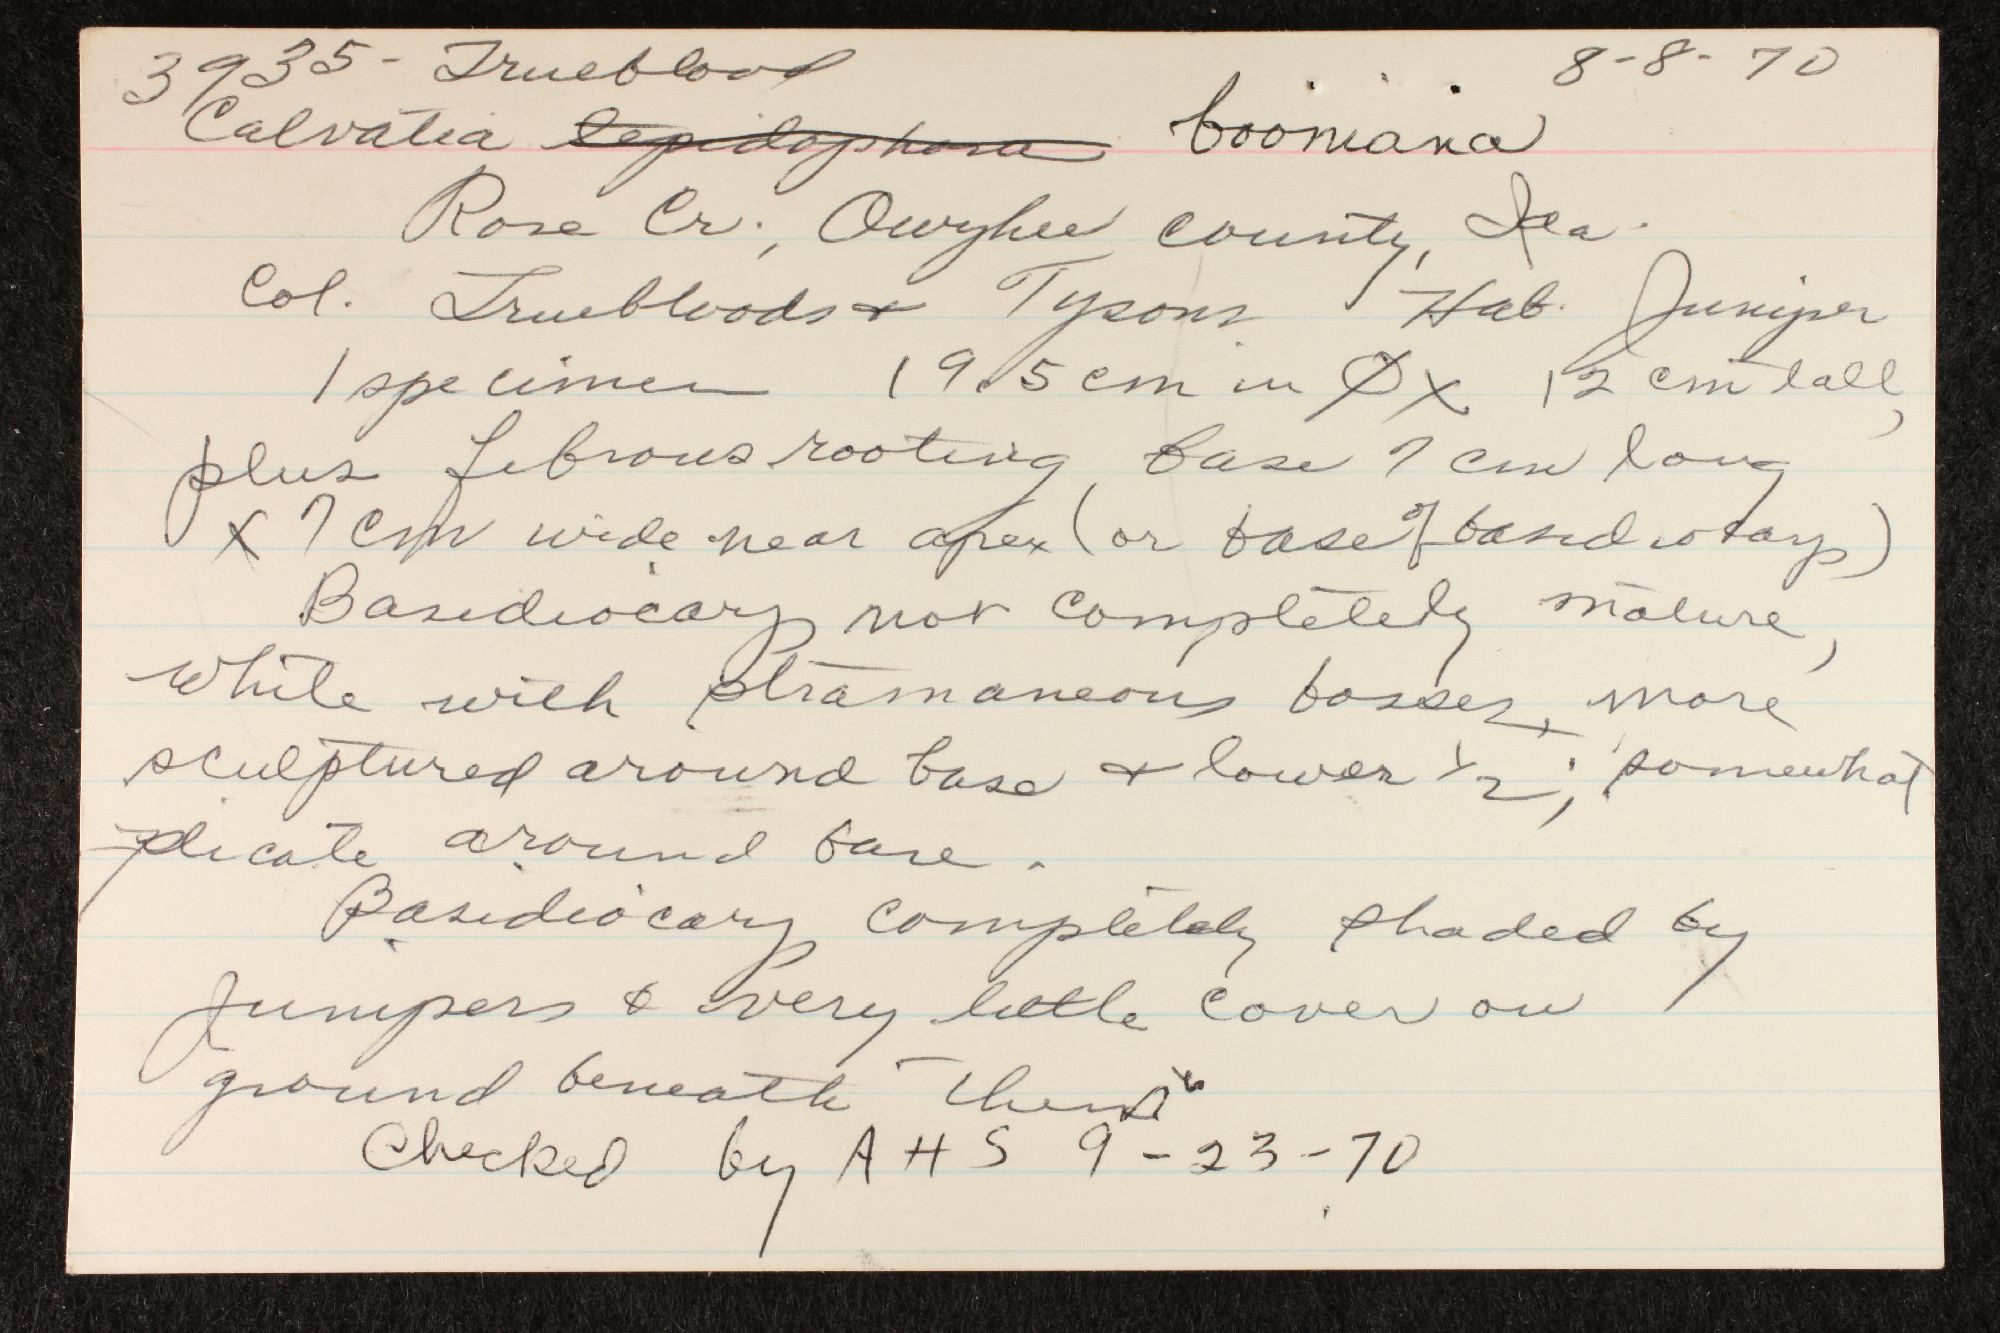 3935 - Trueblood 8-8-70
Calvatia lepidophora booniana
Rose Cr., Owyhee County, Ida.
Col. Truebloods & Tysons Hab. Juniper
1 specimen 19.5 cm in Ø x 12 cm tall,
plus fibrous rooting base 7 cm long
x 7 cm wide near apex (or base of basidiocarp)
Basidiocarp not completely mature,
white with stramaneous bosses, more
sculptured around base & lower 1/2; somewhat
plicate around base.
Basidiocarp completely shaded by
Junipers & very little cover on
ground beneath them
Checked by AHS 9-23-70